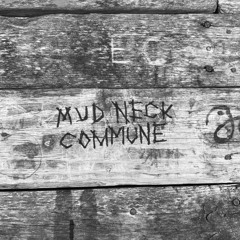 EC
MUD NECK
COMMUNE